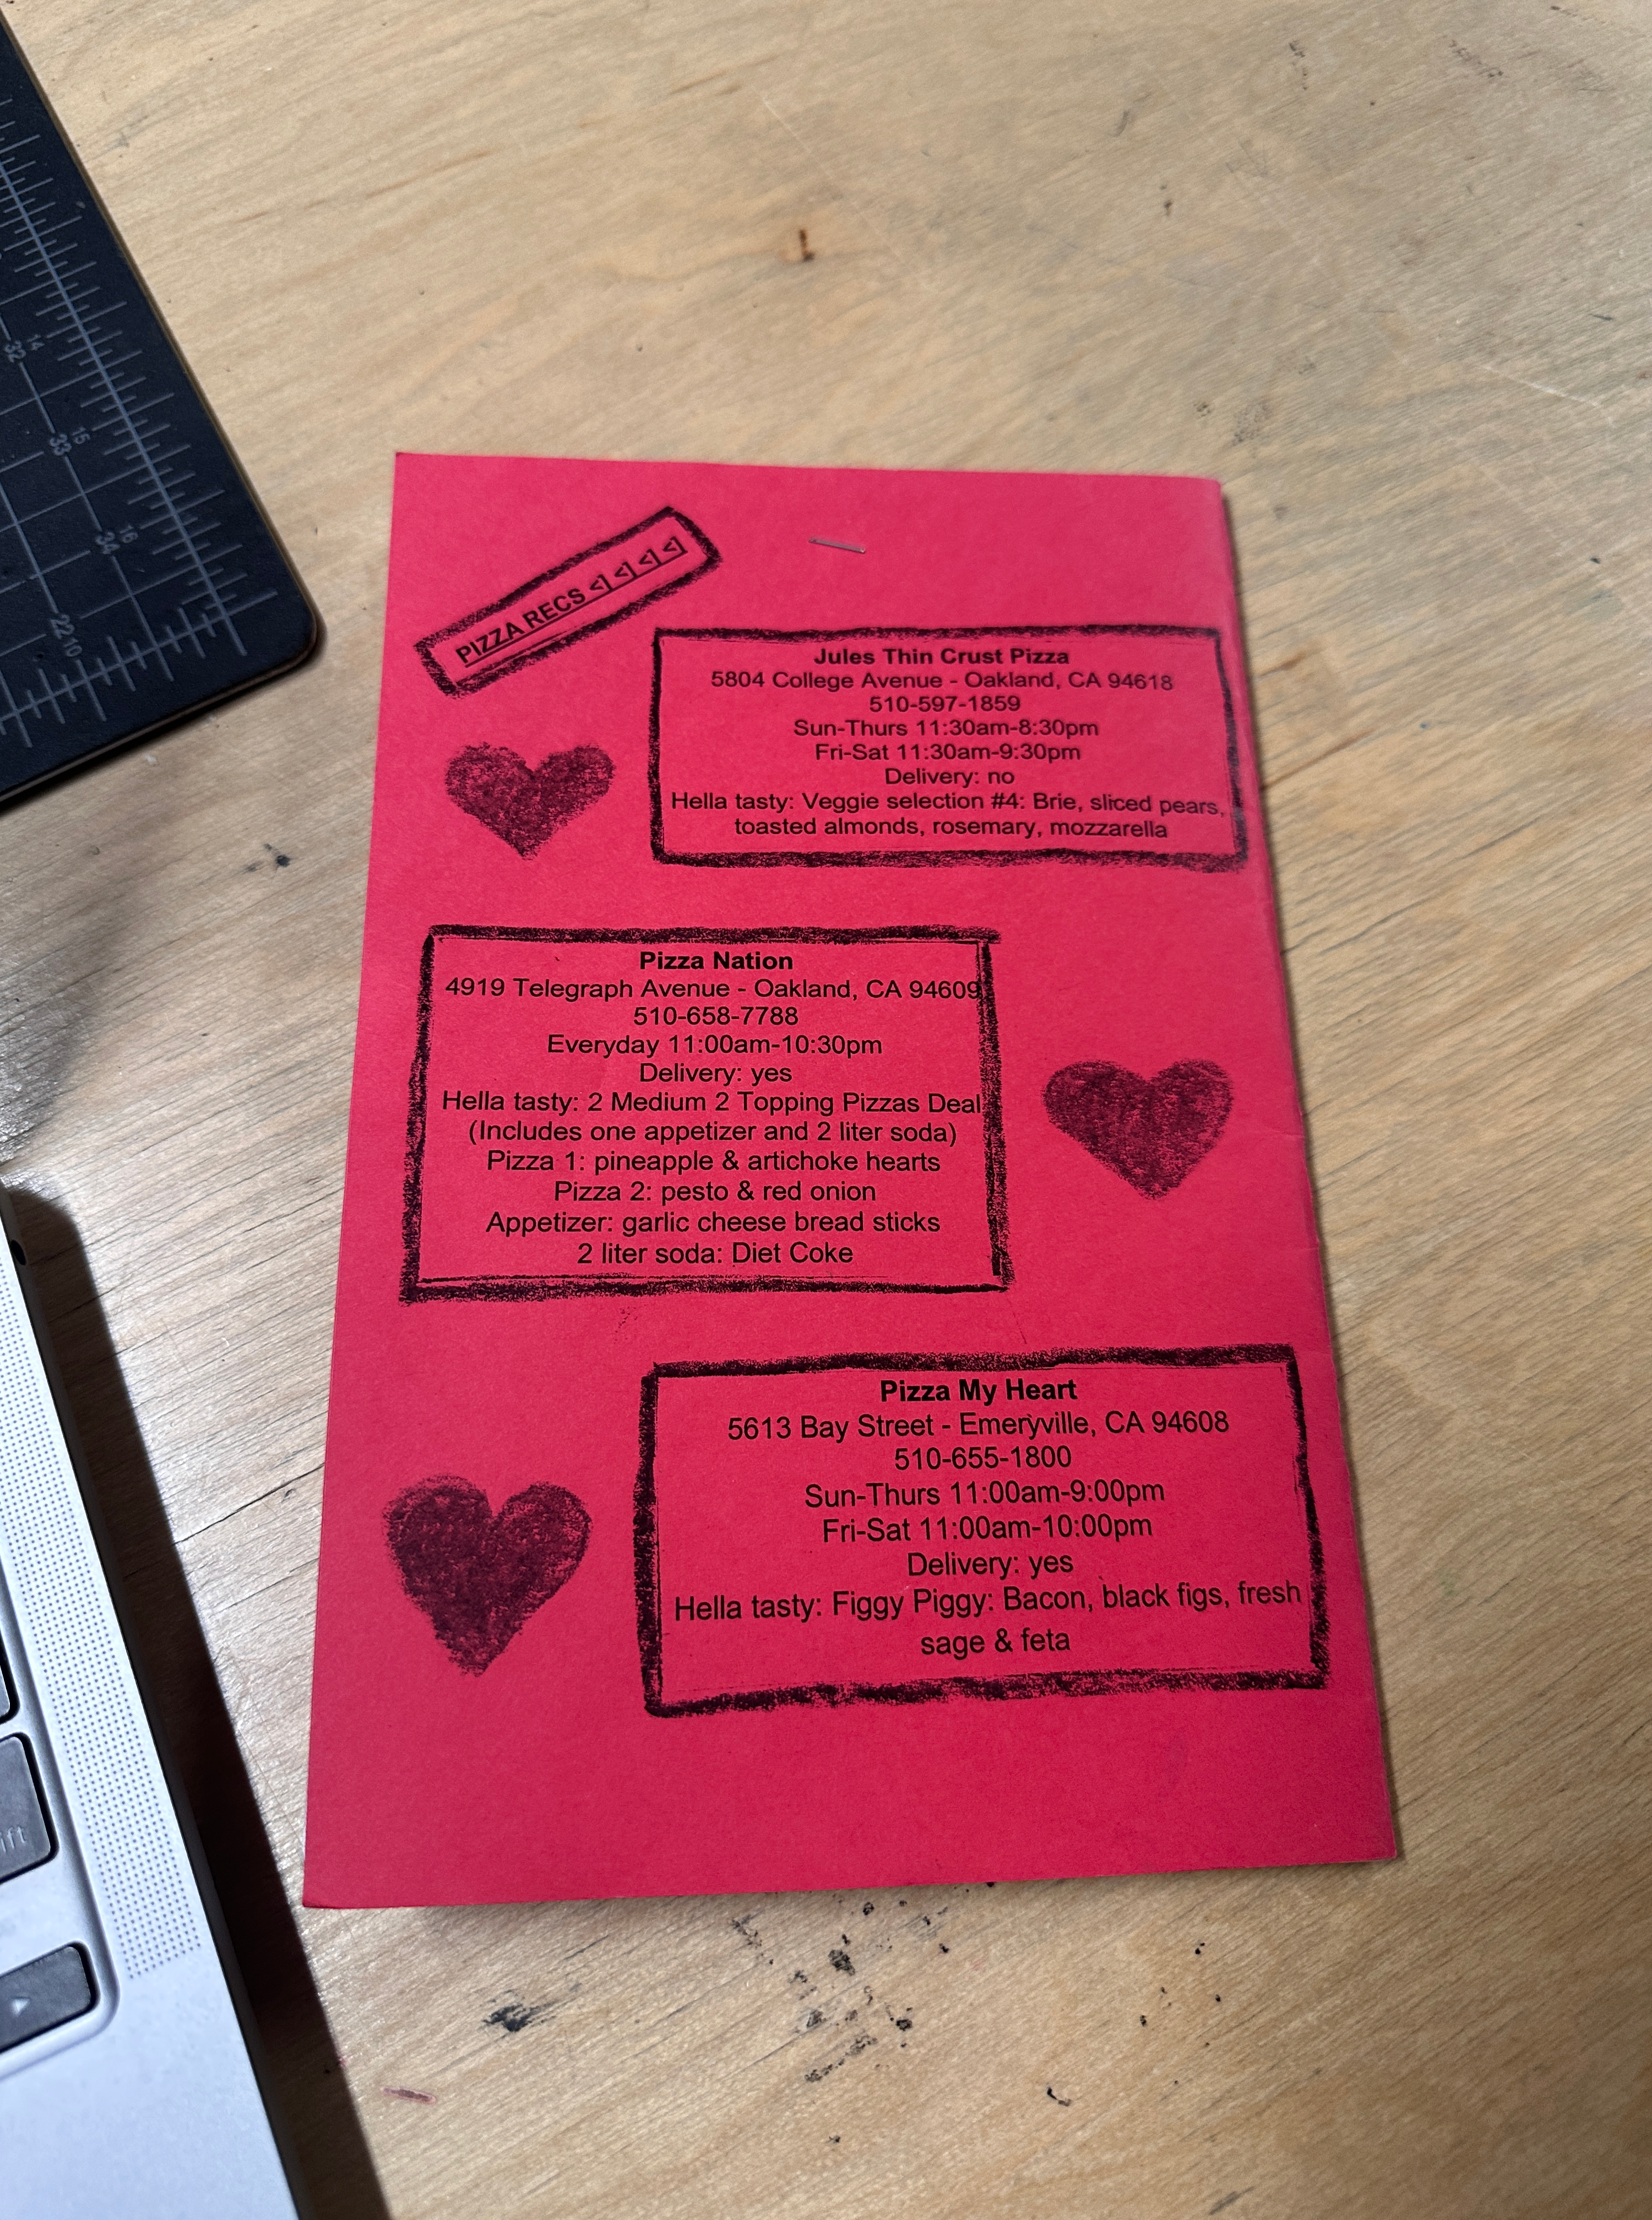 PIZZA RECS <] <] <] <]
Jules Thin Crust Pizza
5804 College Avenue - Oakland, CA 94618
510-597-1859
Sun-Thurs 11:30am-8:30pm
Fri-Sat 11:30am-9:30pm
Delivery: no
Hella tasty: Veggie selection #4: Brie, sliced pears,
toasted almonds, rosemary, mozzarella
Pizza Nation
4919 Telegraph Avenue - Oakland, CA 94609
510-658-7788
Everyday 11:00am-10:30pm
Delivery: yes
Hella tasty: 2 Medium 2 Topping Pizzas Deal
(Includes one appetizer and 2 liter soda)
Pizza 1: pineapple & artichoke hearts
Pizza 2: pesto & red onion
Appetizer: garlic cheese bread sticks
2 liter soda: Diet Coke
Pizza My Heart
5613 Bay Street - Emeryville, CA 94608
510-655-1800
Sun-Thurs 11:00am-9:00pm
Fri-Sat 11:00am-10:00pm
Delivery: yes
Hella tasty: Figgy Piggy: Bacon, black figs, fresh
sage & feta
32 14
33 15
34 16
22 10
ift